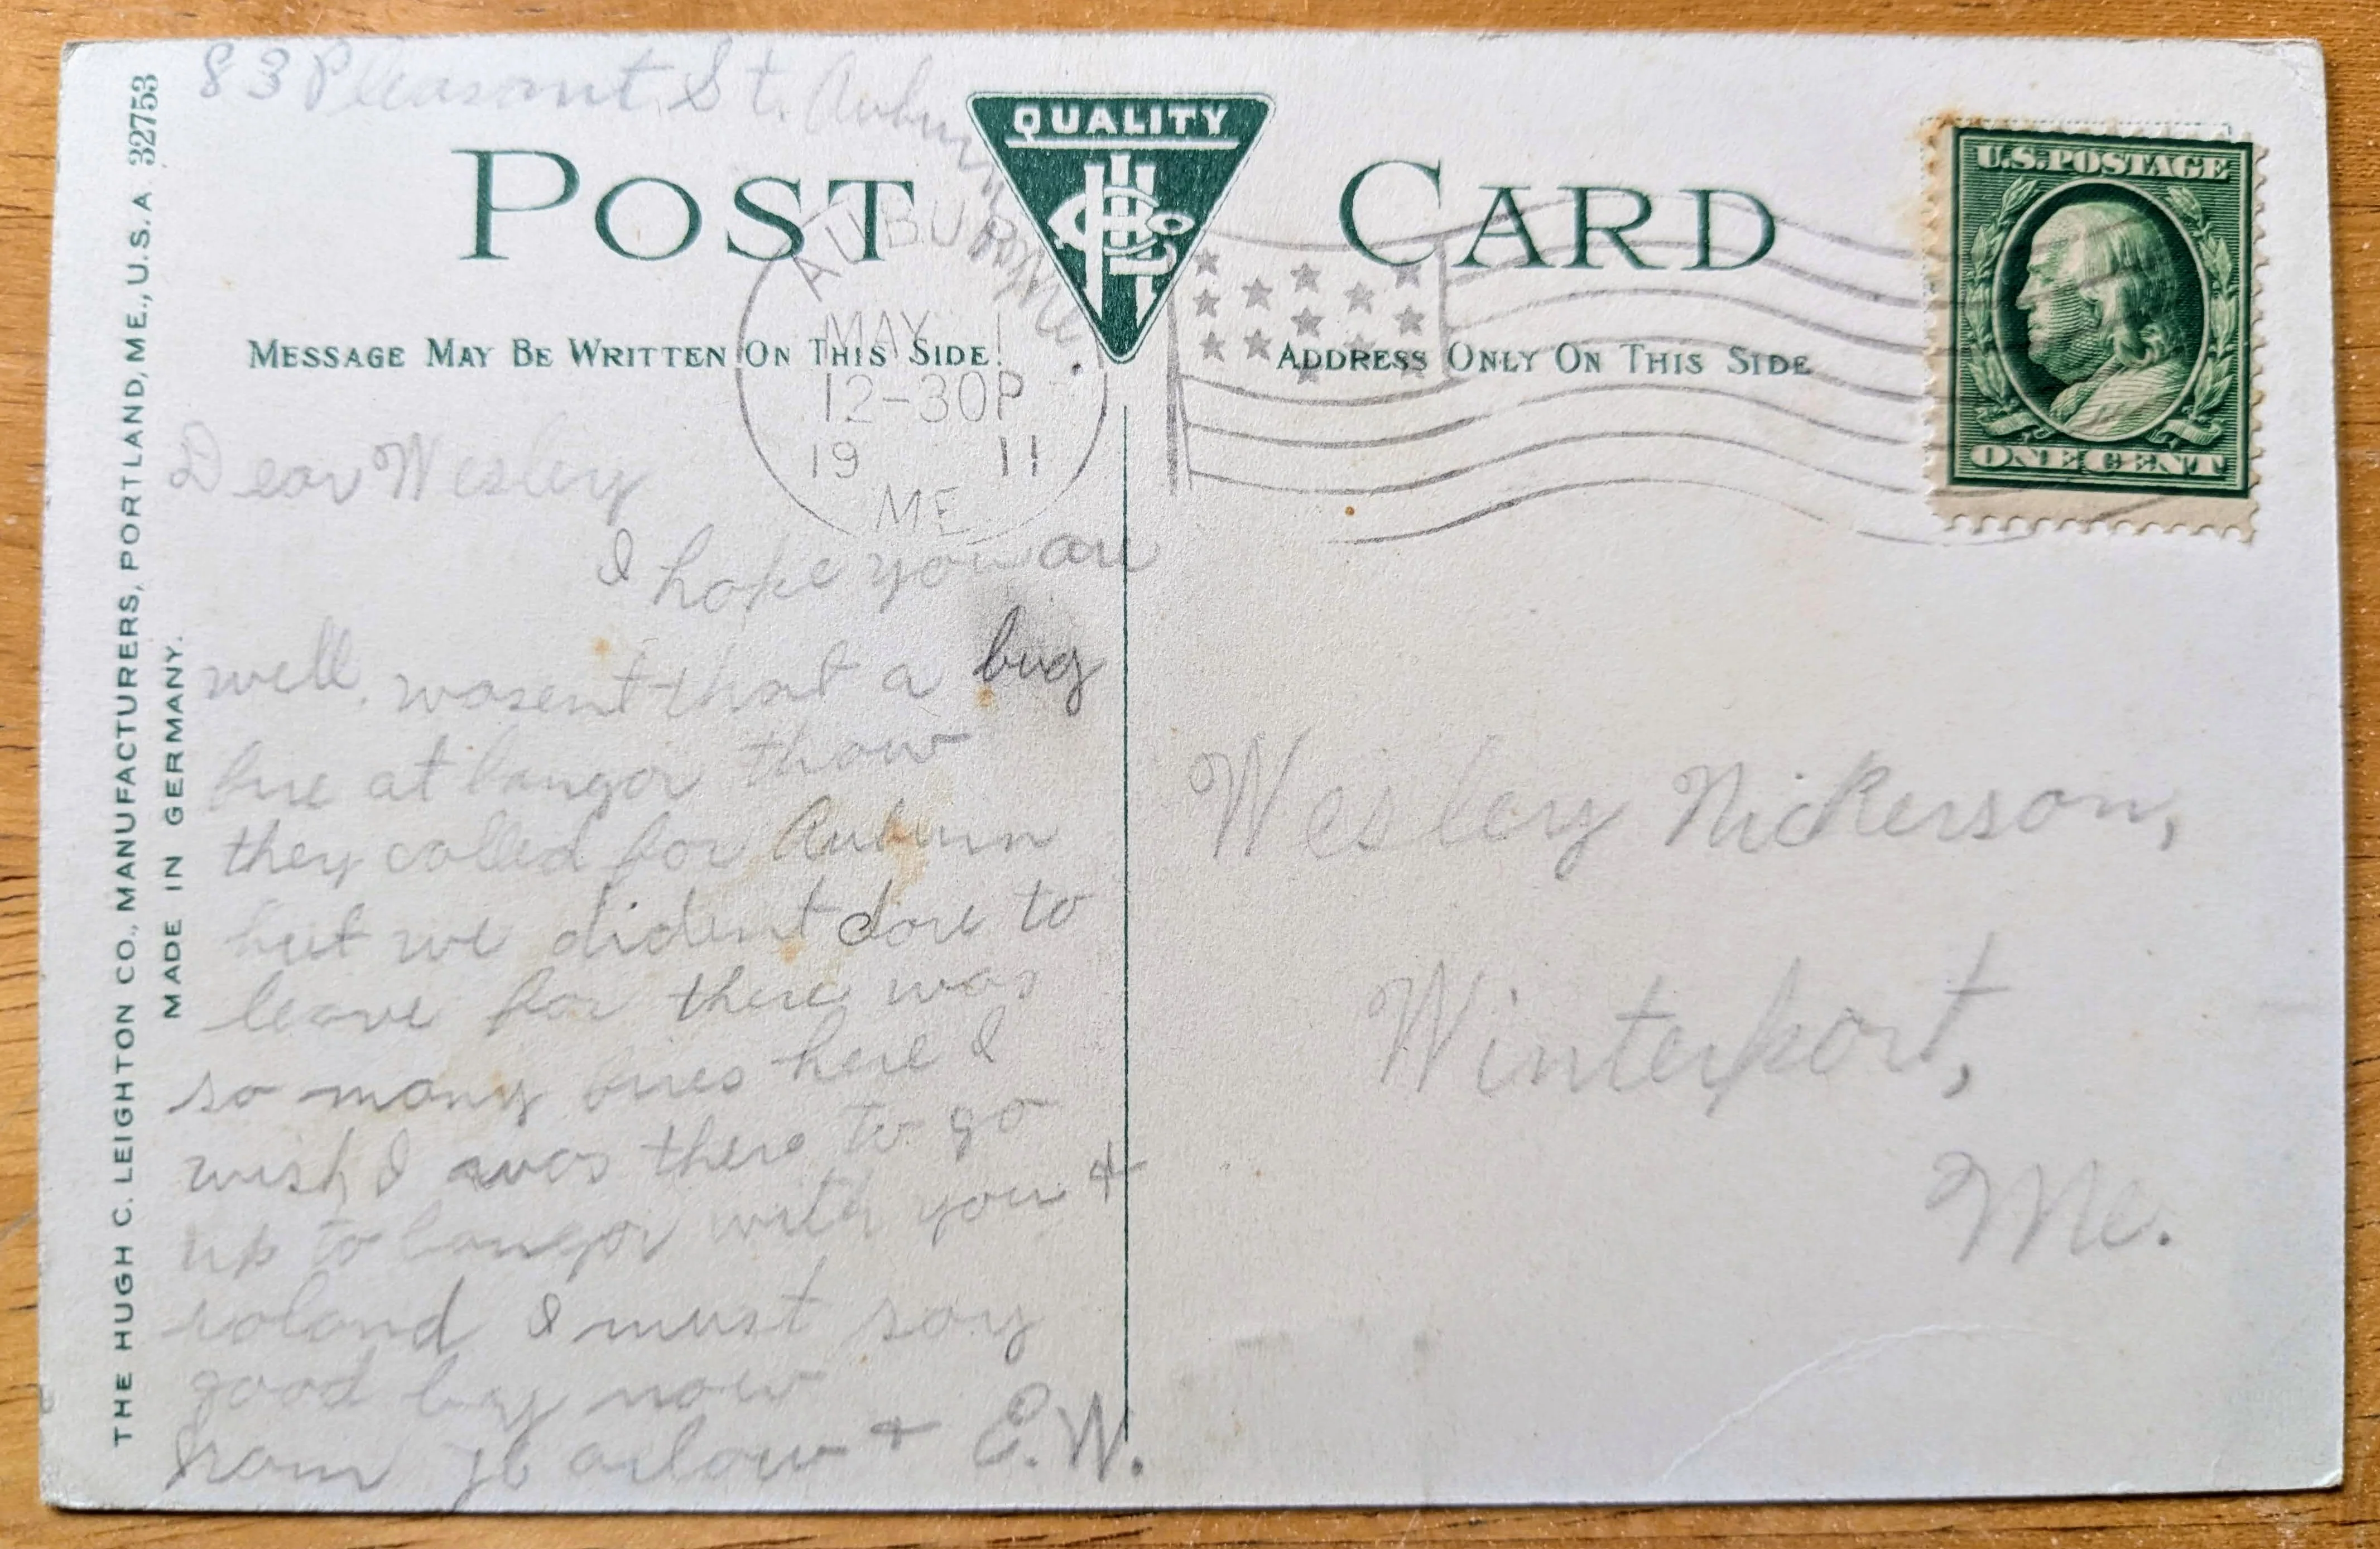 83 Pleasant St. Auburn, Me.
QUALITY
POST CARD
U.S. POSTAGE
ONE CENT
AUBURN
MAY 1
12-30P
19 11
ME.
MESSAGE MAY BE WRITTEN ON THIS SIDE.
ADDRESS ONLY ON THIS SIDE
THE HUGH C. LEIGHTON CO., MANUFACTURERS, PORTLAND, ME., U.S.A 32753
MADE IN GERMANY.
Dear Wesley
I hope you are
well. wasent that a bug
fire at bangor thow
they called for Auburn
but we dident dare to
leave for there was
so many fires here I
wish I was there to go
up to bangor with you +
roland I must say
good bay now
from + E.W.
Wesley Nickerson,
Winterport,
Me.